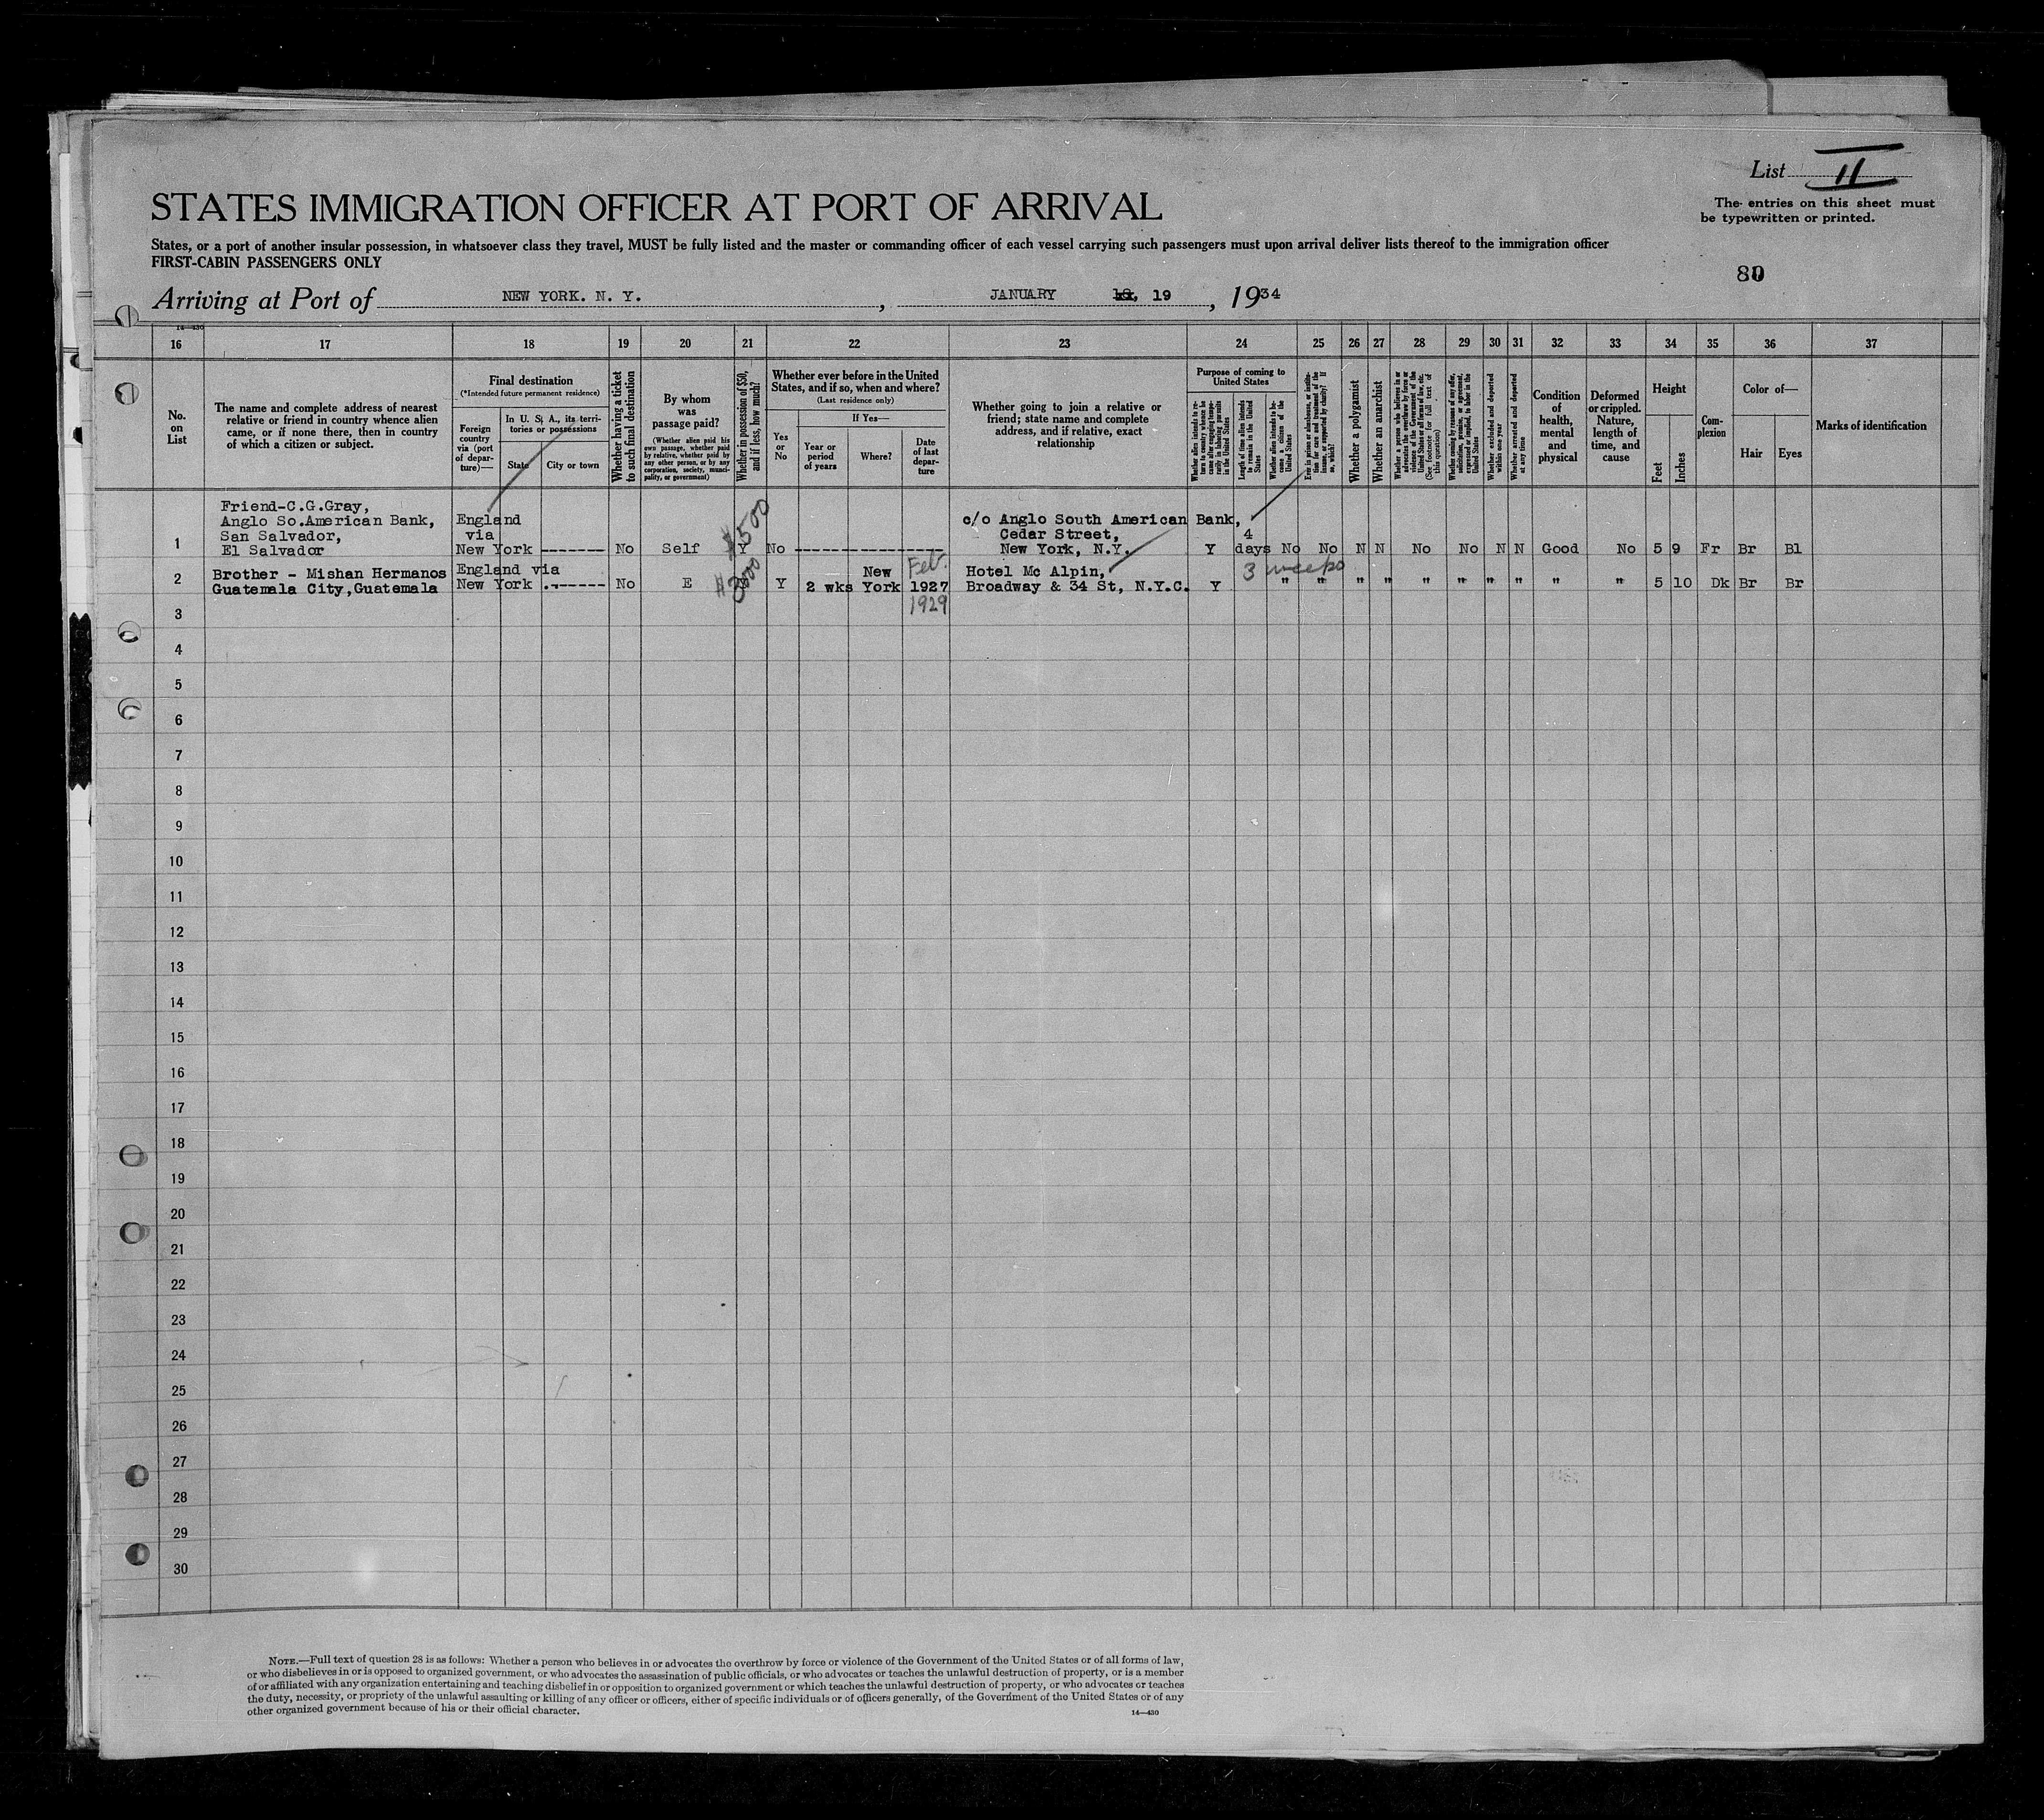 List II
The entries on this sheet must
be typewritten or printed.
STATES IMMIGRATION OFFICER AT PORT OF ARRIVAL
States, or a port of another insular possession, in whatsoever class they travel, MUST be fully listed and the master or commanding officer of each vessel carrying such passengers must upon arrival deliver lists thereof to the immigration officer
FIRST-CABIN PASSENGERS ONLY
80
Arriving at Port of NEW YORK. N. Y., JANUARY 18, 19, 1934
14—430
16 17 18 19 20 21 22 23 24 25 26 27 28 29 30 31 32 33 34 35 36 37
No.
on
List
The name and complete address of nearest
relative or friend in country whence alien
came, or if none there, then in country
of which a citizen or subject.
Final destination
(*Intended future permanent residence)
Foreign
country
via (port
of depar-
ture)—
In U. S. A., its terri-
tories or possessions
State
City or town
Whether having a ticket
to such final destination
By whom
was
passage paid?
(Whether alien paid his
own passage, whether paid
by relative, whether paid by
any other person, or by any
corporation, society, munici-
pality, or government)
Whether in possession of $50,
and if less, how much?
Whether ever before in the United
States, and if so, when and where?
(Last residence only)
Yes
or
No
If Yes—
Year or
period
of years
Where?
Date
of last
depar-
ture
Whether going to join a relative or
friend; state name and complete
address, and if relative, exact
relationship
Purpose of coming to
United States
Whether alien intends to re-
turn to country whence he
came after engaging tempo-
rarily in laboring pursuits
in the United States
Length of time alien intends
to remain in the United
States
Whether alien intends to be-
come a citizen of the
United States
Ever in prison or almshouse, or institu-
tion for care and treatment of the
insane, or supported by charity? If
so, which?
Whether a polygamist
Whether an anarchist
Whether a person who believes in or
advocates the overthrow by force or
violence of the Government of the
United States or all forms of law, etc.
(See footnote for full text of
this question)
Whether coming by reasons of any offer,
solicitation, promise, or agreement,
expressed or implied, to labor in the
United States
Whether excluded and deported
within one year
Whether arrested and deported
at any time
Condition
of
health,
mental
and
physical
Deformed
or crippled.
Nature,
length of
time, and
cause
Height
Feet
Inches
Com-
plexion
Color of—
Hair
Eyes
Marks of identification
Friend-C.G.Gray,
Anglo So.American Bank, England $500 c/o Anglo South American Bank,
San Salvador, via Cedar Street, 4
1 El Salvador New York ------- No Self Y No ---------------- New York, N.Y. Y days No No N N No No N N Good No 5 9 Fr Br Bl
Brother - Mishan Hermanos England via $3000 New Feb. Hotel Mc Alpin, 3 weeks
2 Guatemala City,Guatemala New York ------- No E Y 2 wks York 1927 Broadway & 34 St, N.Y.C. Y " " " " " " " " " " 5 10 Dk Br Br
1929
3
4
5
6
7
8
9
10
11
12
13
14
15
16
17
18
19
20
21
22
23
24
25
26
27
28
29
30
NOTE.—Full text of question 28 is as follows: Whether a person who believes in or advocates the overthrow by force or violence of the Government of the United States or of all forms of law,
or who disbelieves in or is opposed to organized government, or who advocates the assassination of public officials, or who advocates or teaches the unlawful destruction of property, or is a member
of or affiliated with any organization entertaining and teaching disbelief in or opposition to organized government or which teaches the unlawful destruction of property, or who advocates or teaches
the duty, necessity, or propriety of the unlawful assaulting or killing of any officer or officers, either of specific individuals or of officers generally, of the Government of the United States or of any
other organized government because of his or their official character.
14—430